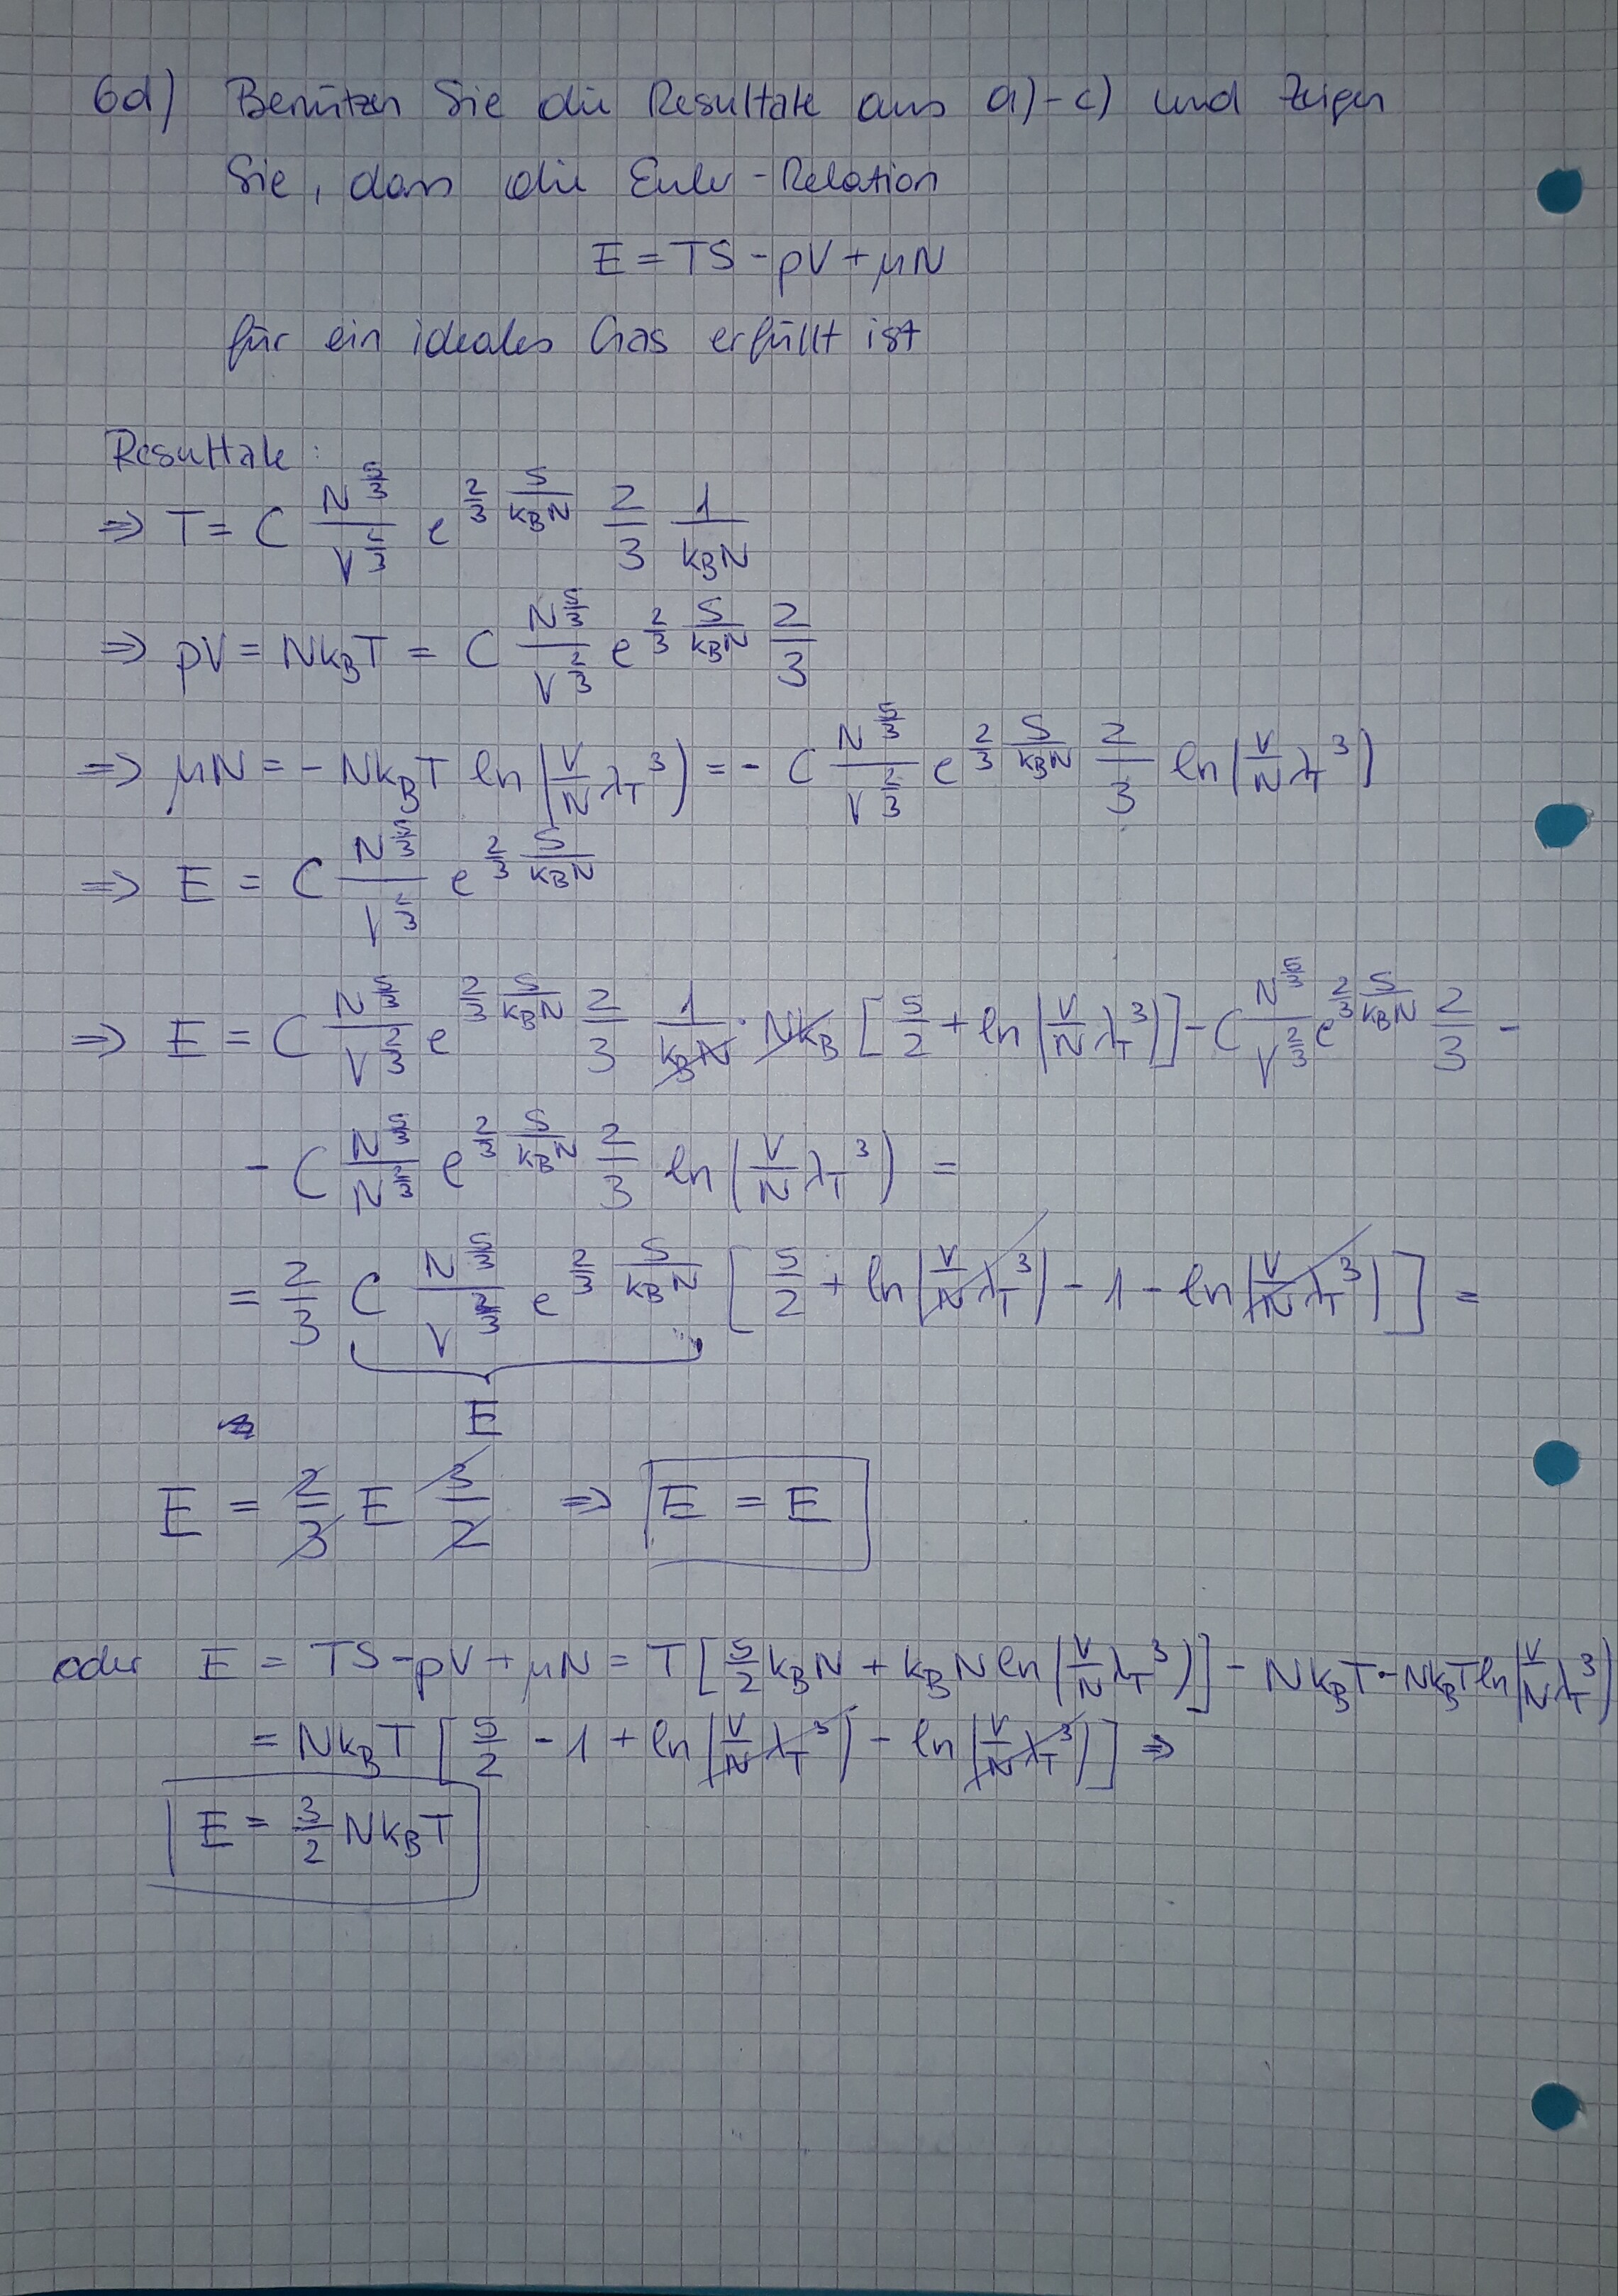 6d) Benützen Sie die Resultate aus a)-c) und zeigen
Sie, dass die Euler-Relation
E = TS - pV + μN
für ein ideales Gas erfüllt ist
Resultate:
⇒ T = C N^{5/3}/V^{2/3} e^{2/3 S/(k_B N)} 2/3 1/(k_B N)
⇒ pV = Nk_BT = C N^{5/3}/V^{2/3} e^{2/3 S/(k_B N)} 2/3
⇒ μN = - Nk_BT ln(V/N λ_T^3) = - C N^{5/3}/V^{2/3} e^{2/3 S/(k_B N)} 2/3 ln(V/N λ_T^3)
⇒ E = C N^{5/3}/V^{2/3} e^{2/3 S/(k_B N)}
⇒ E = C N^{5/3}/V^{2/3} e^{2/3 S/(k_B N)} 2/3 1/(k_B N) · Nk_B [5/2 + ln(V/N λ_T^3)] - C N^{5/3}/V^{2/3} e^{2/3 S/(k_B N)} 2/3 -
- C N^{5/3}/N^{2/3} e^{2/3 S/(k_B N)} 2/3 ln(V/N λ_T^3) =
= 2/3 C N^{5/3}/V^{2/3} e^{2/3 S/(k_B N)} [5/2 + ln(V/N λ_T^3) - 1 - ln(V/N λ_T^3)] =
E
E = 2/3 E 3/2 ⇒ E = E
oder E = TS - pV + μN = T[5/2 k_B N + k_B N ln(V/N λ_T^3)] - Nk_BT - Nk_BT ln(V/N λ_T^3)
= Nk_BT [5/2 - 1 + ln(V/N λ_T^3) - ln(V/N λ_T^3)] ⇒
E = 3/2 Nk_BT